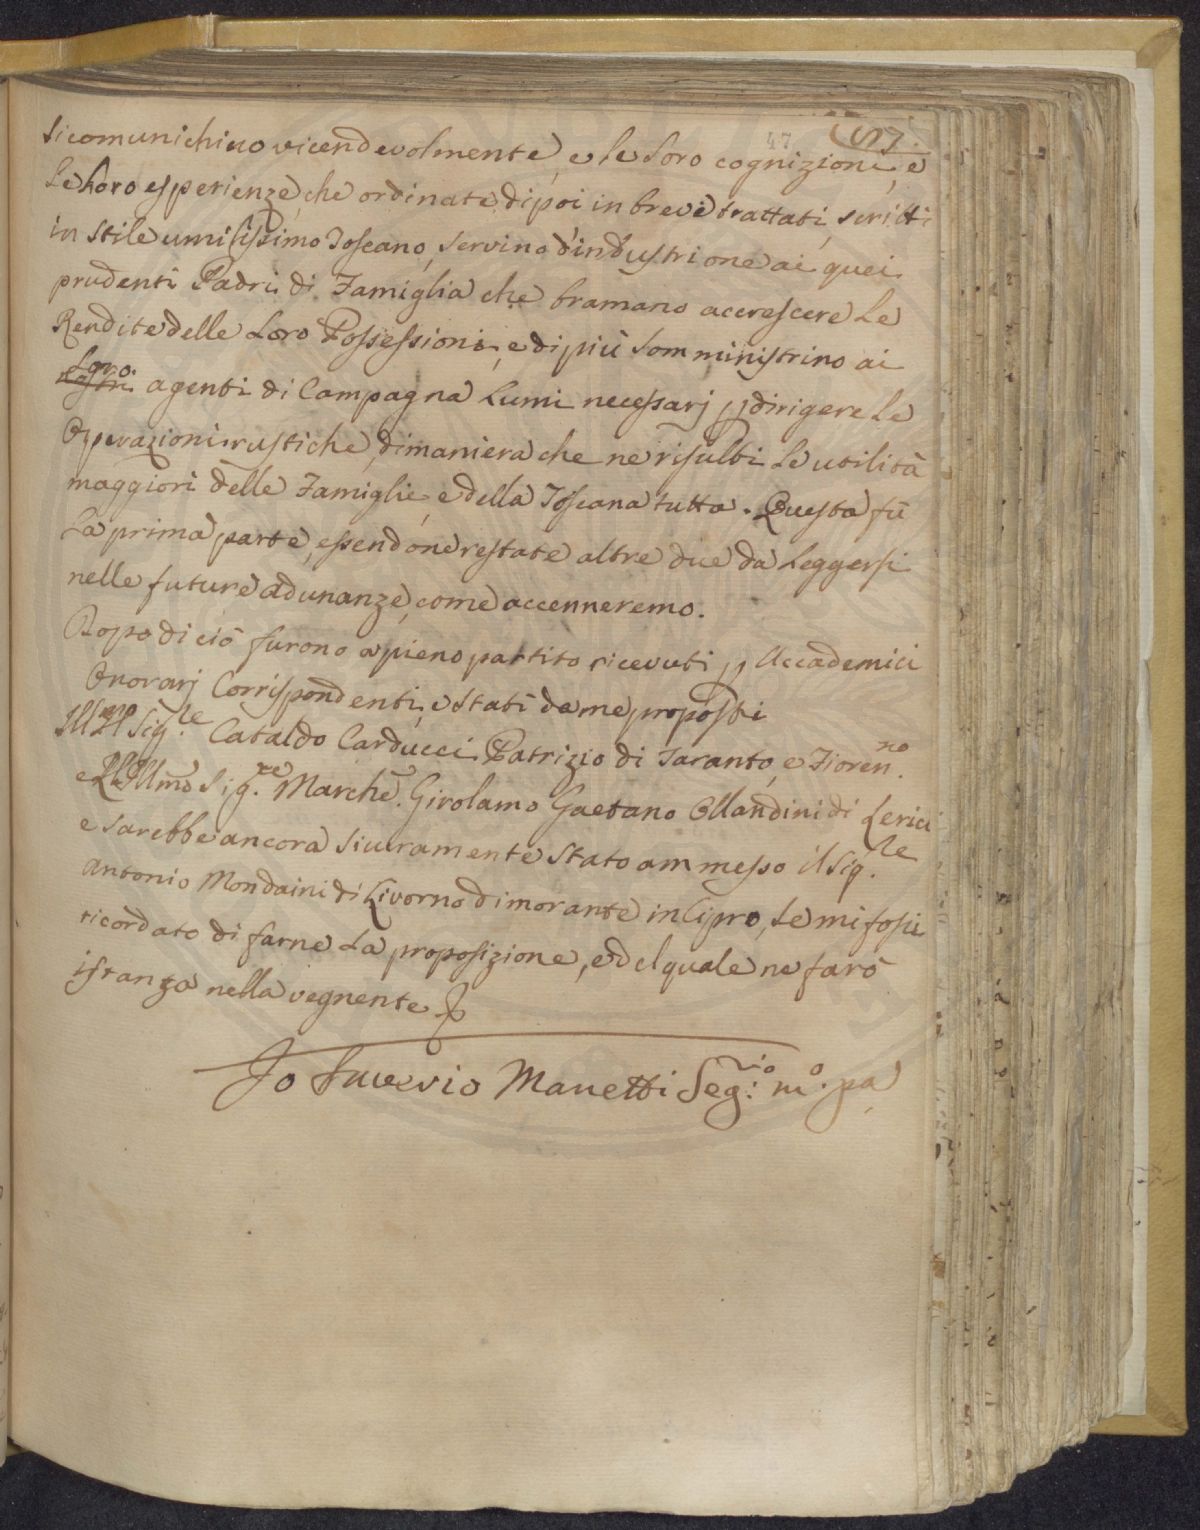 47 57.
si comunichino vicendevolmente, e le loro cognizioni, e
le loro esperienze, che ordinate dipoi in brevi trattati, scritti
in stile umilissimo Toscano, servino d'industrione ai quei
prudenti Padri di Famiglia che bramano accrescere le
Rendite delle loro Possessioni, e di più somministrino ai
Loro
agenti di Campagna Lumi necessarj p dirigere le
Operazioni rustiche, dimaniera che ne risulti le utilità
maggiori delle Famiglie, e della Toscana tutta. Questa fù
la prima parte, essendone restate altre due da leggersi
nelle future adunanze, come accenneremo.
Dopo di ciò furono a pieno partito ricevuti p Accademici
Onorarj Corrispondenti, e stati da me proposti
Ill.mo Sig.re Cataldo Carducci Patrizio di Taranto, e Fioren.no
e Ill.mo Sig.re Marche. Girolamo Gaetano Ollandini di Lerici
e sarebbe ancora sicuramente stato ammesso il Sig.re
Antonio Mondaini di Livorno dimorante in Cipro, se mi fossi
ricordato di farne la proposizione, e del quale ne farò
istanza nella vegnente
Io Saverio Manetti Seg:rio m.o pa